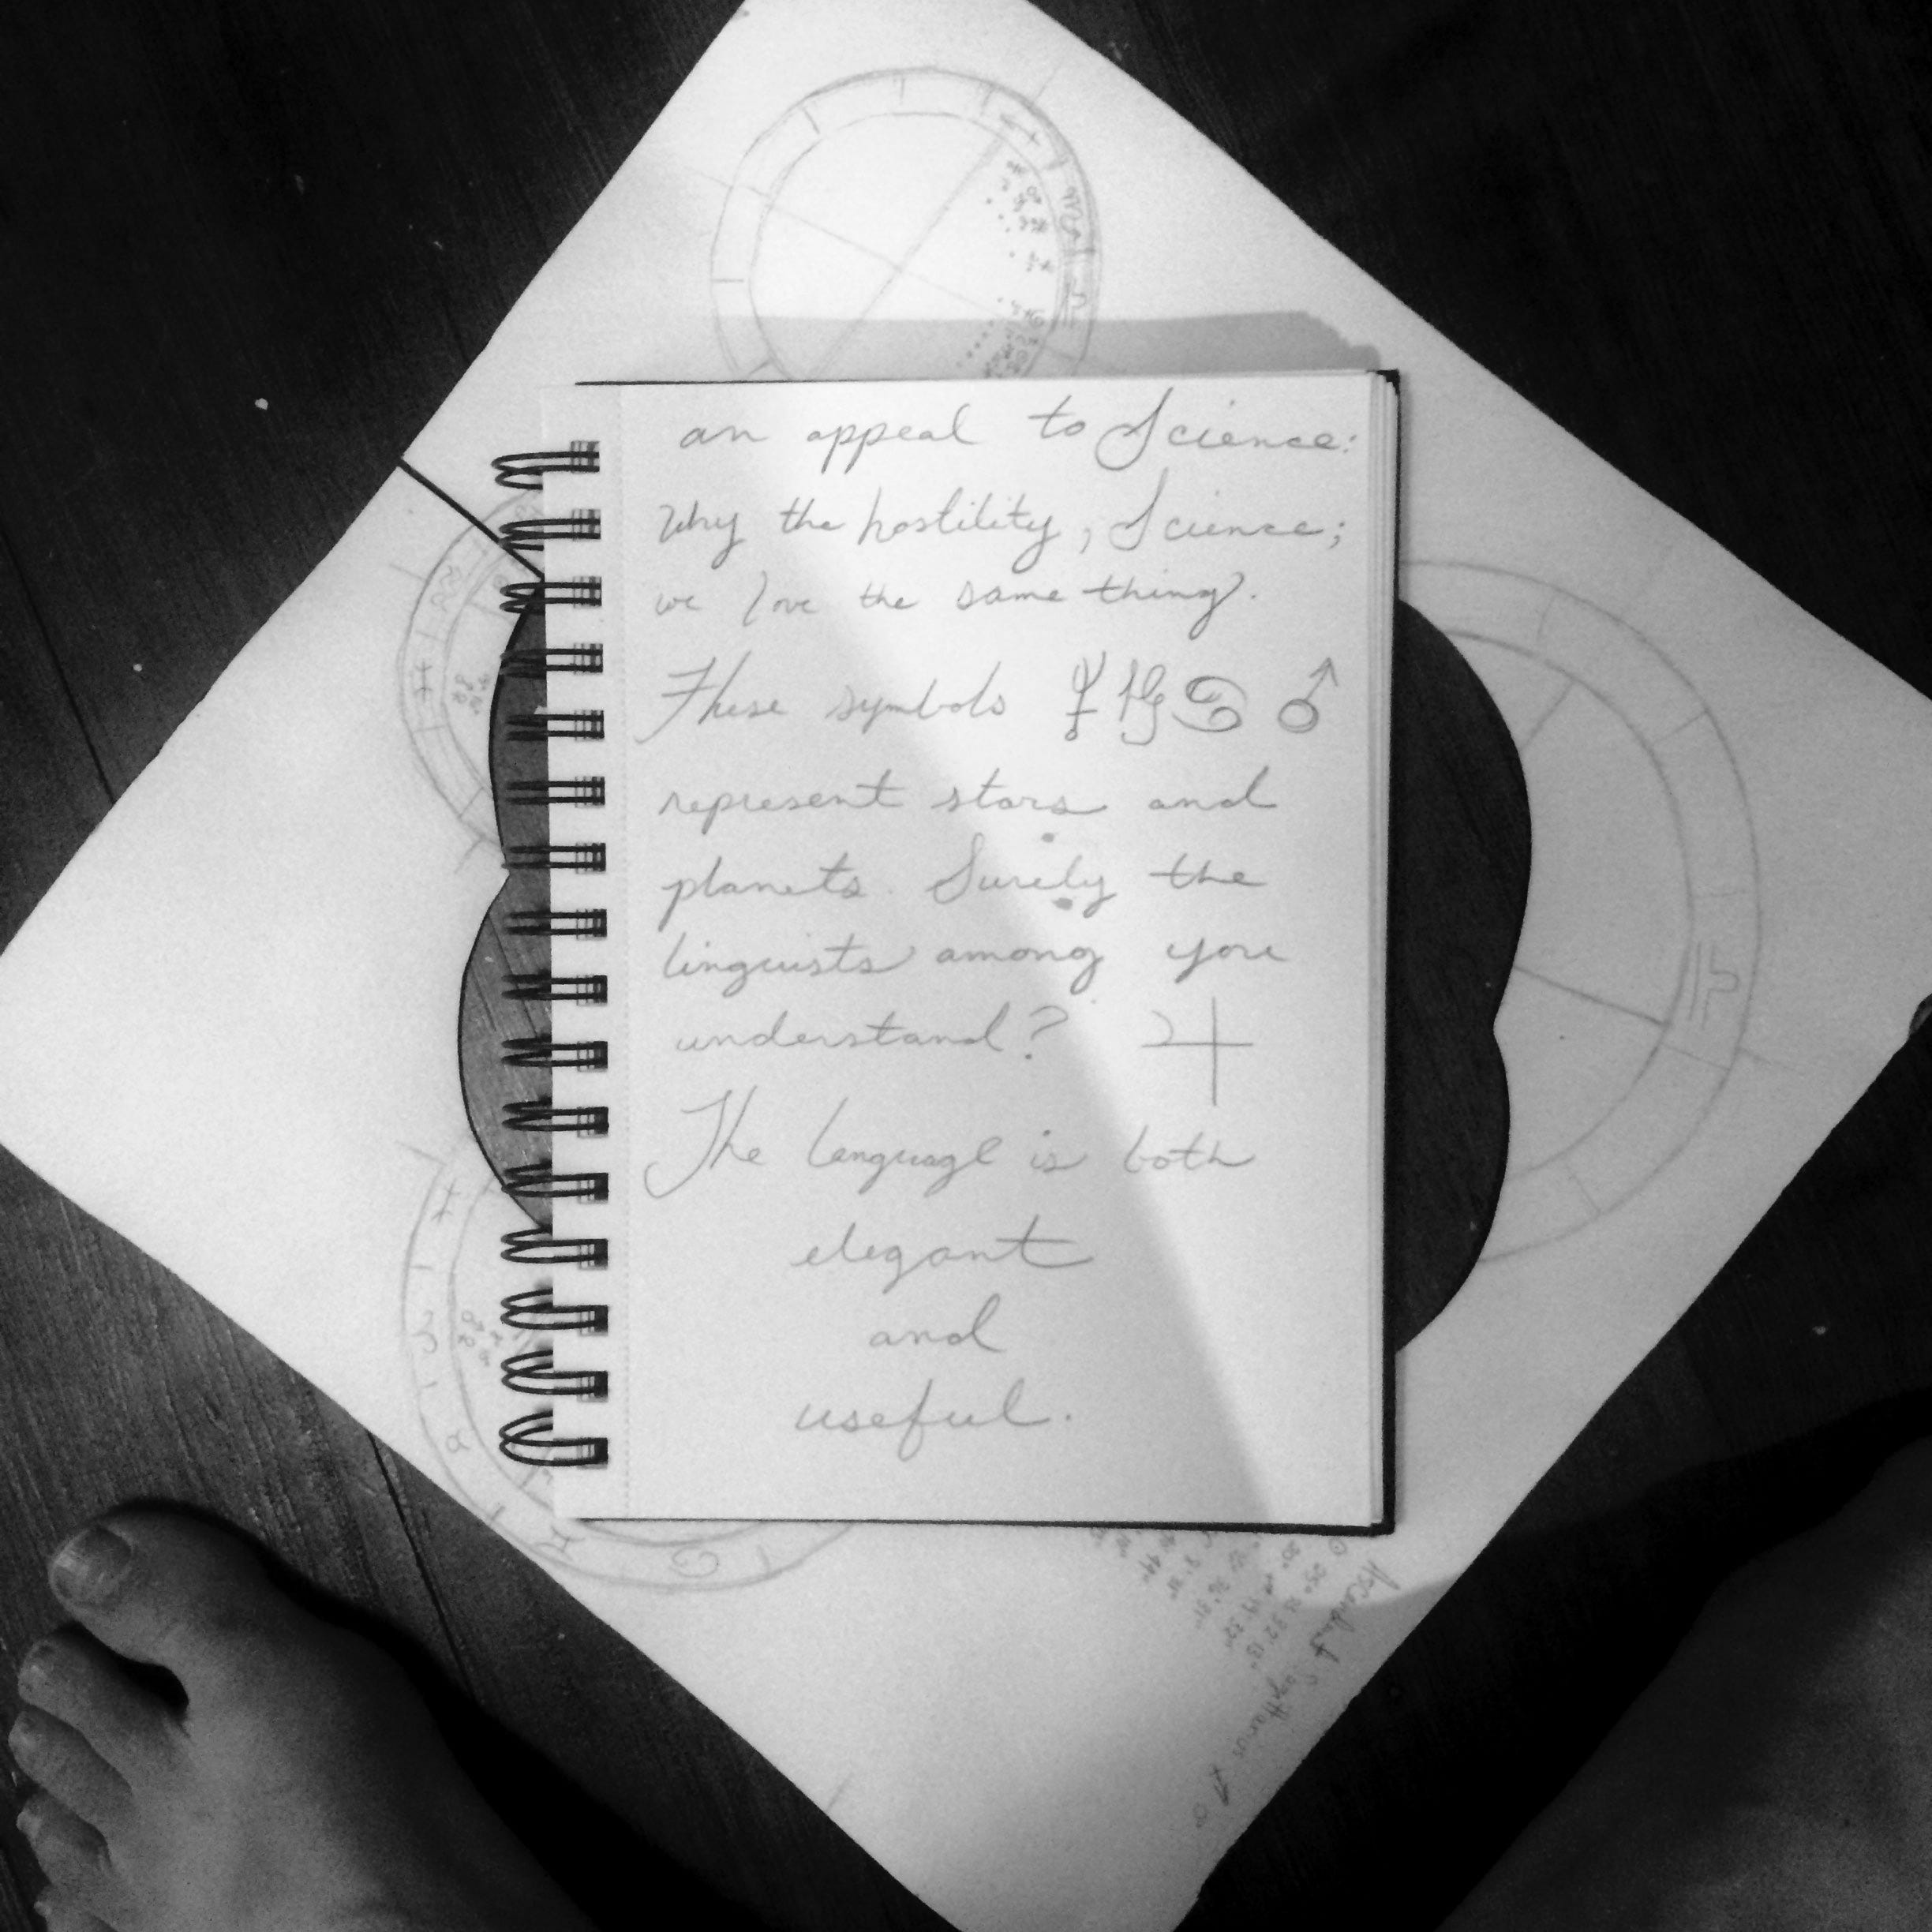 an appeal to Science:
Why the hostility, Science;
we love the same thing.
These symbols ♆ ♑ ♋ ♂
represent stars and
planets. Surely the
linguists among you
understand? ♃
The language is both
elegant
and
useful.
Ascendant Sagittarius ♐